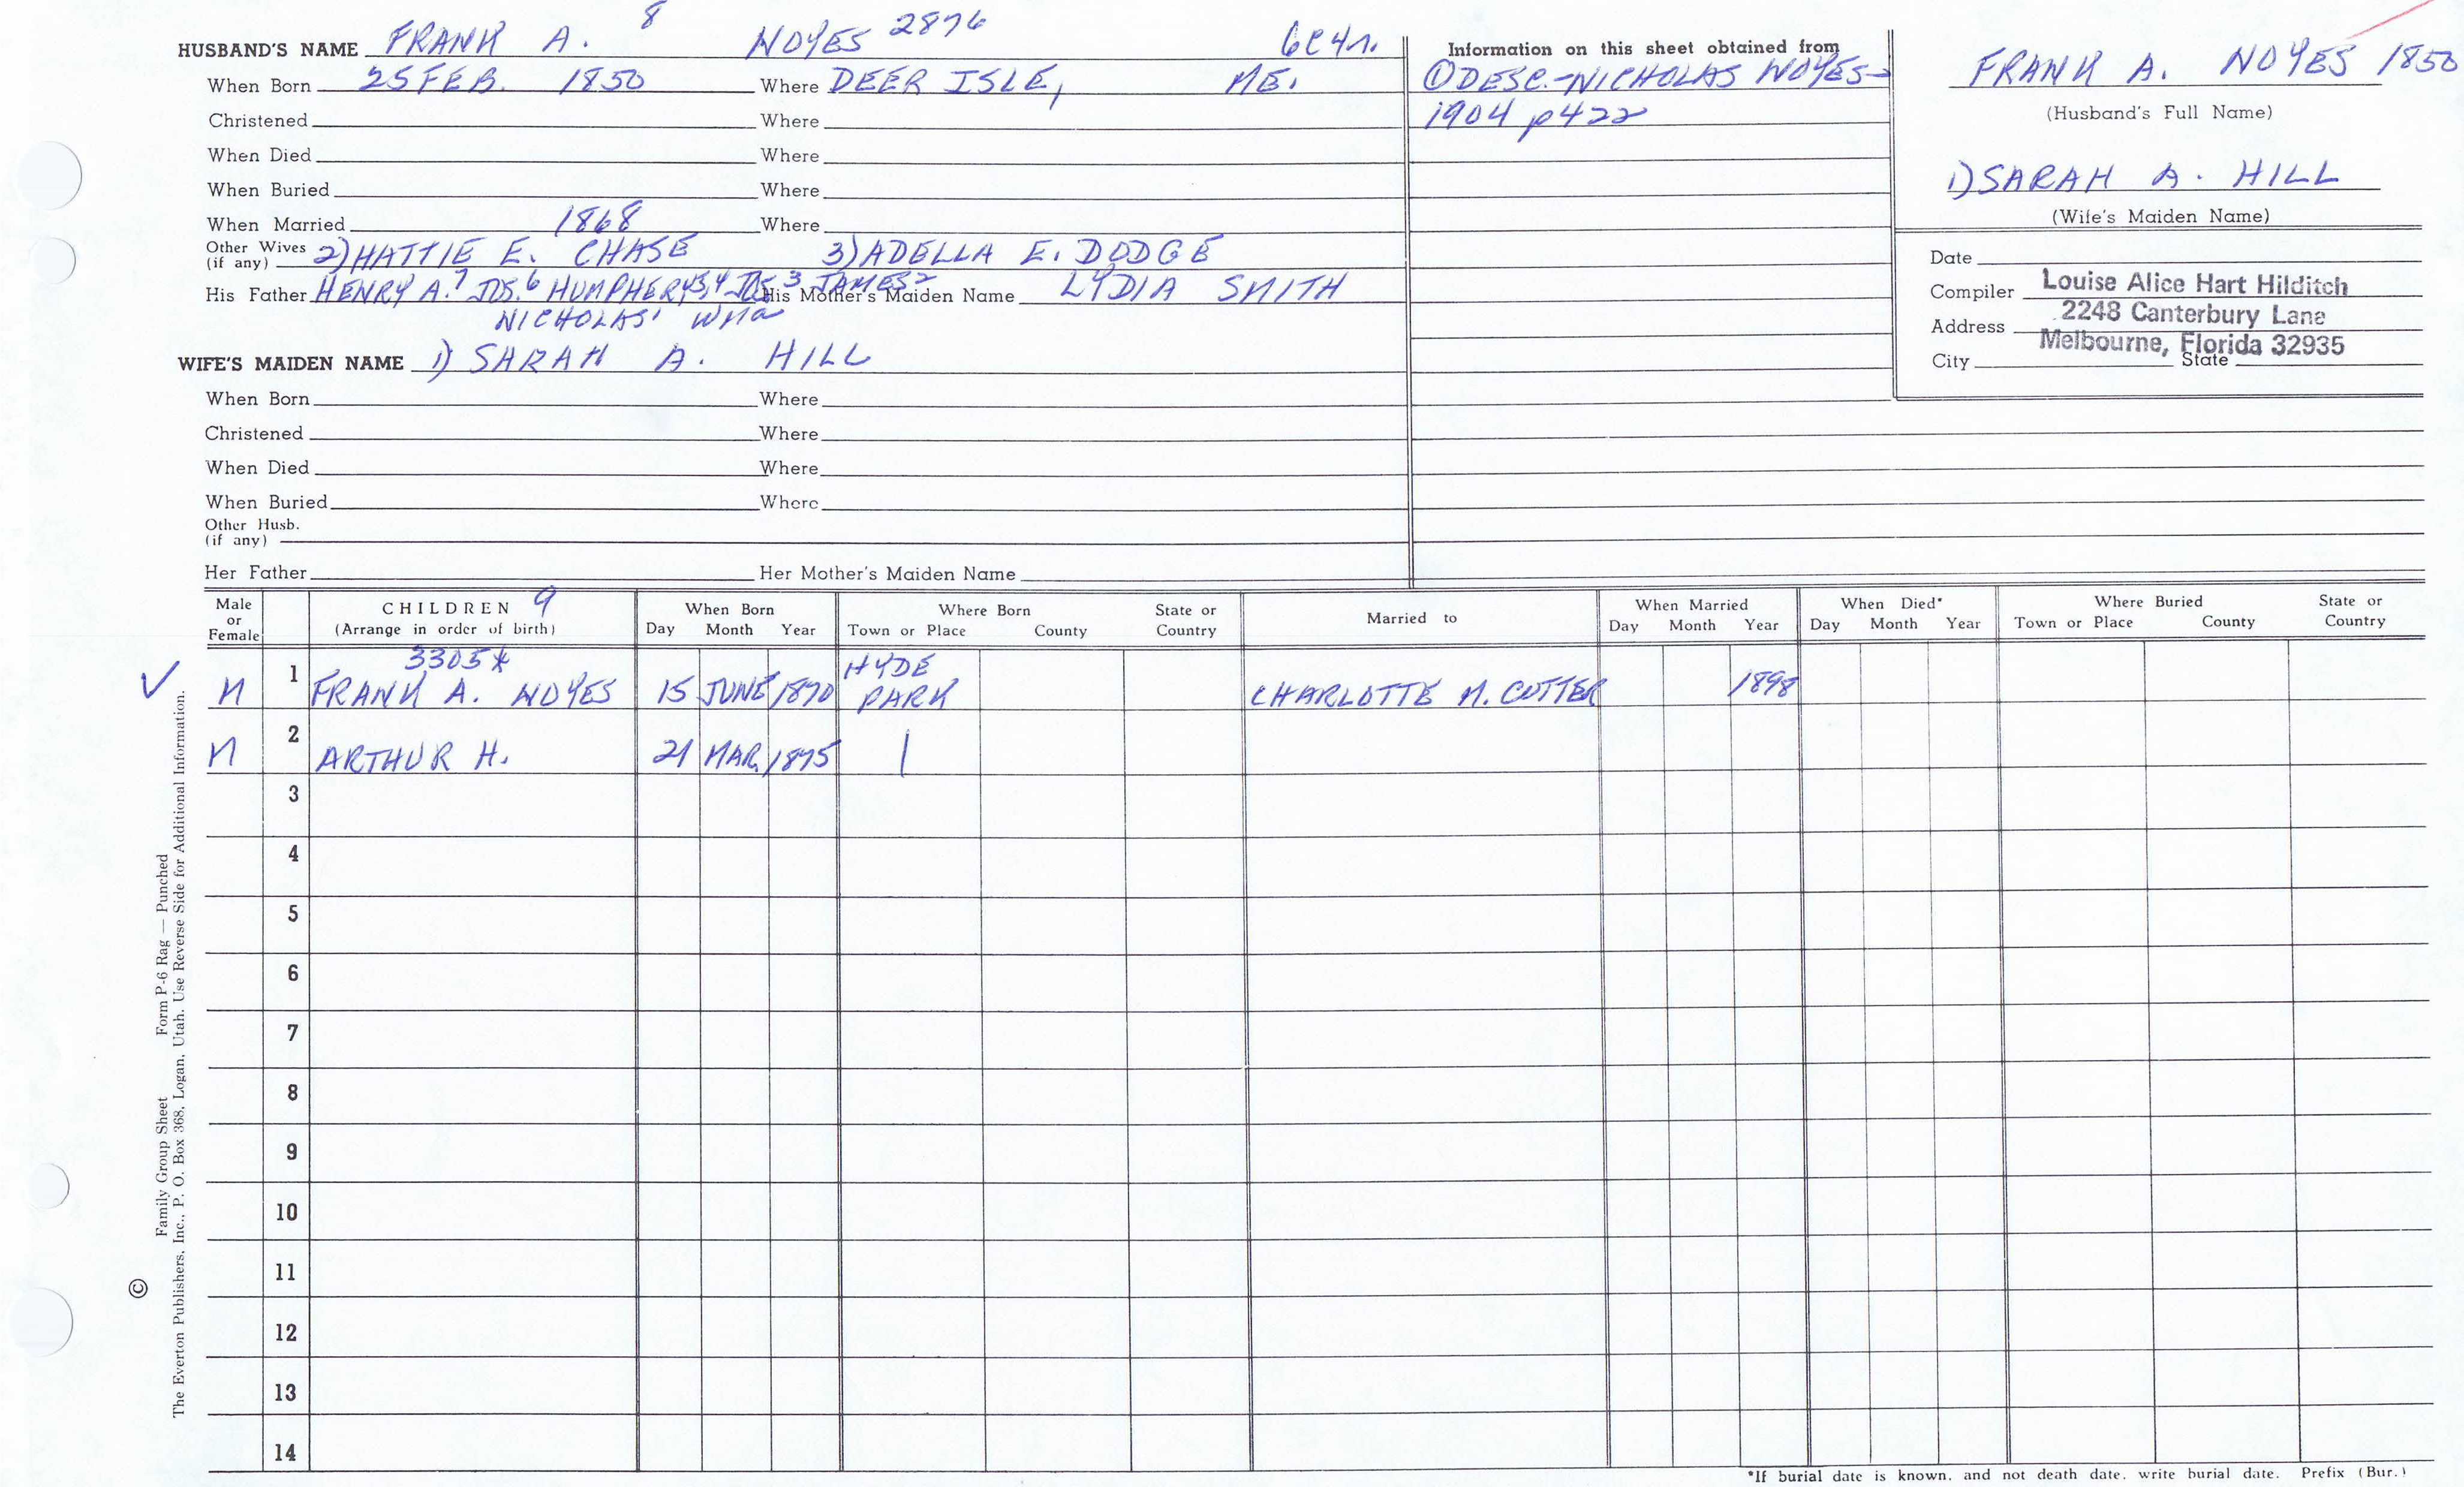 HUSBAND'S NAME FRANK A. 8 NOYES 2876 6C4R.
When Born 25 FEB. 1850 Where DEER ISLE, ME.
Christened Where
When Died Where
When Buried Where
When Married 1868 Where
Other Wives (if any) 2) HATTIE E. CHASE 3) ADELLA E. DODGE
His Father HENRY A.7 JOS.6 HUMPHERY5,4 JOS3 JAMES2 His Mother's Maiden Name LYDIA SMITH
NICHOLAS1 Wma
WIFE'S MAIDEN NAME 1) SARAH A. HILL
When Born Where
Christened Where
When Died Where
When Buried Where
Other Husb.
(if any)
Her Father Her Mother's Maiden Name
Information on this sheet obtained from
① DESC.-NICHOLAS NOYES-
1904 p422
FRANK A. NOYES 1850
(Husband's Full Name)
1) SARAH A. HILL
(Wife's Maiden Name)
Date
Compiler Louise Alice Hart Hilditch
Address 2248 Canterbury Lane
Melbourne, Florida 32935
City State
Male or Female CHILDREN 9 (Arrange in order of birth) When Born Day Month Year Where Born Town or Place County State or Country Married to When Married Day Month Year When Died* Day Month Year Where Buried Town or Place County State or Country
✓ M 1 3305* FRANK A. NOYES 15 JUNE 1870 HYDE PARK CHARLOTTE M. CUTTER 1898
M 2 ARTHUR H. 21 MAR. 1875 |
3
4
5
6
7
8
9
10
11
12
13
14
*If burial date is known, and not death date, write burial date. Prefix (Bur.)
Family Group Sheet Form P-6 Rag — Punched
© The Everton Publishers, Inc., P. O. Box 368, Logan, Utah. Use Reverse Side for Additional Information.